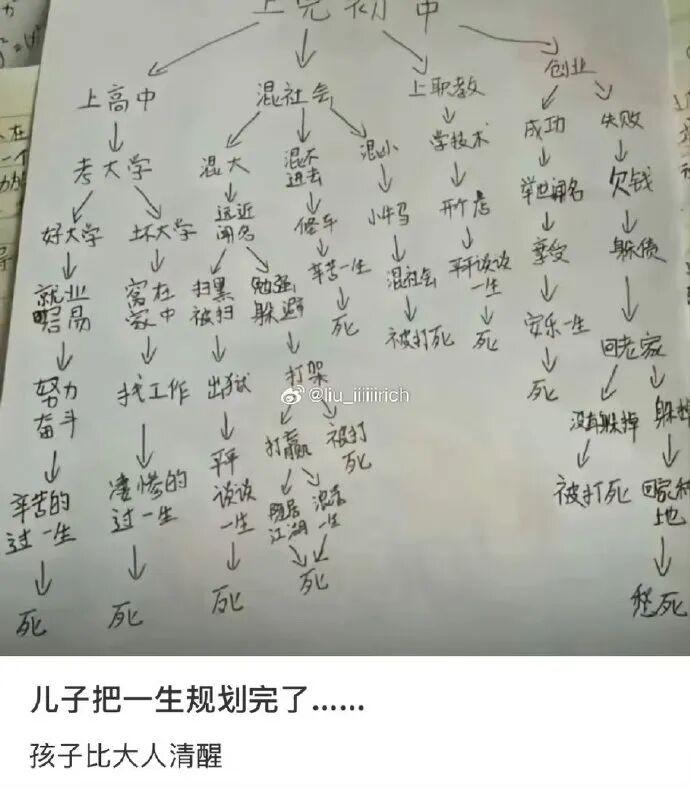 上完初中
上高中
混社会
上职教
创业
考大学
混大
混不
进去
混小
学技术
成功
失败
好大学
坏大学
远近
闻名
修车
小牛马
开个店
举世闻名
欠钱
就业
容易
窝在
家中
扫黑
被扫
勉强
躲避
辛苦一生
混社会
平平谈谈
一生
享受
躲债
死
被打死
死
安乐一生
回老家
努力
奋斗
找工作
出狱
打架
死
@liu_iiiiiirich
没有躲掉
躲掉
打赢
被打
死
辛苦的
过一生
凄惨的
过一生
平平
谈谈
一生
隐居
江湖
混一生
被打死
回家种
地
死
死
死
死
死
儿子把一生规划完了......
孩子比大人清醒